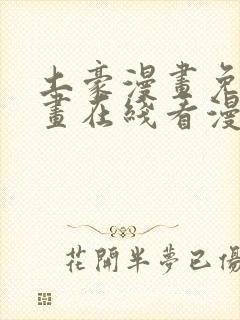 土豪漫畫免
畫在綫看漫
花開半夢已傷